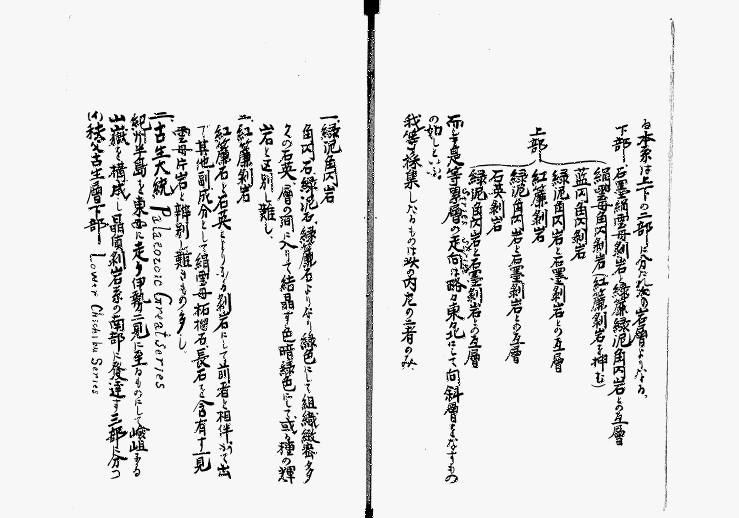 本系は上下の二部に分たれ次の岩層よりなる、
下部 石墨絹雲母剥岩と緑簾緑泥角閃岩との互層
絹雲母角閃剥岩(紅簾剥岩を挿む)
藍閃角閃剥岩
上部
緑泥角閃岩と石墨剥岩との互層
紅簾剥岩
緑泥角閃岩と石墨剥岩との互層
石英剥岩
緑泥角閃岩と石墨剥岩との互層
而して是等累層の走向は略々東々北にして向斜層をなすもの
の如しといふ
我等の採集したるものは次の内度の三者のみ
一、緑泥角閃岩
角閃石緑泥石緑簾石よりなり緑色にして組織緻密多
くの石英層の間に入りて結晶す色暗緑色にして或る種の輝
岩と区別し難し、
二、紅簾剥岩
紅簾石と石英とよりなる剥岩にして前者と相伴ひて出
で其他副成分として絹雲母柘榴石長石を含有す一見
雲母片岩と辨別し難きもの多し、
二、古生大統 Palaeozoic Great series
紀州半島を東西に走り伊勢二見に至るものにして嶮岨なる
山嶽を構成し晶質剥岩系の南部に發達す三部に分つ
(イ)秩父古生層下部 Lower Chichibu Series